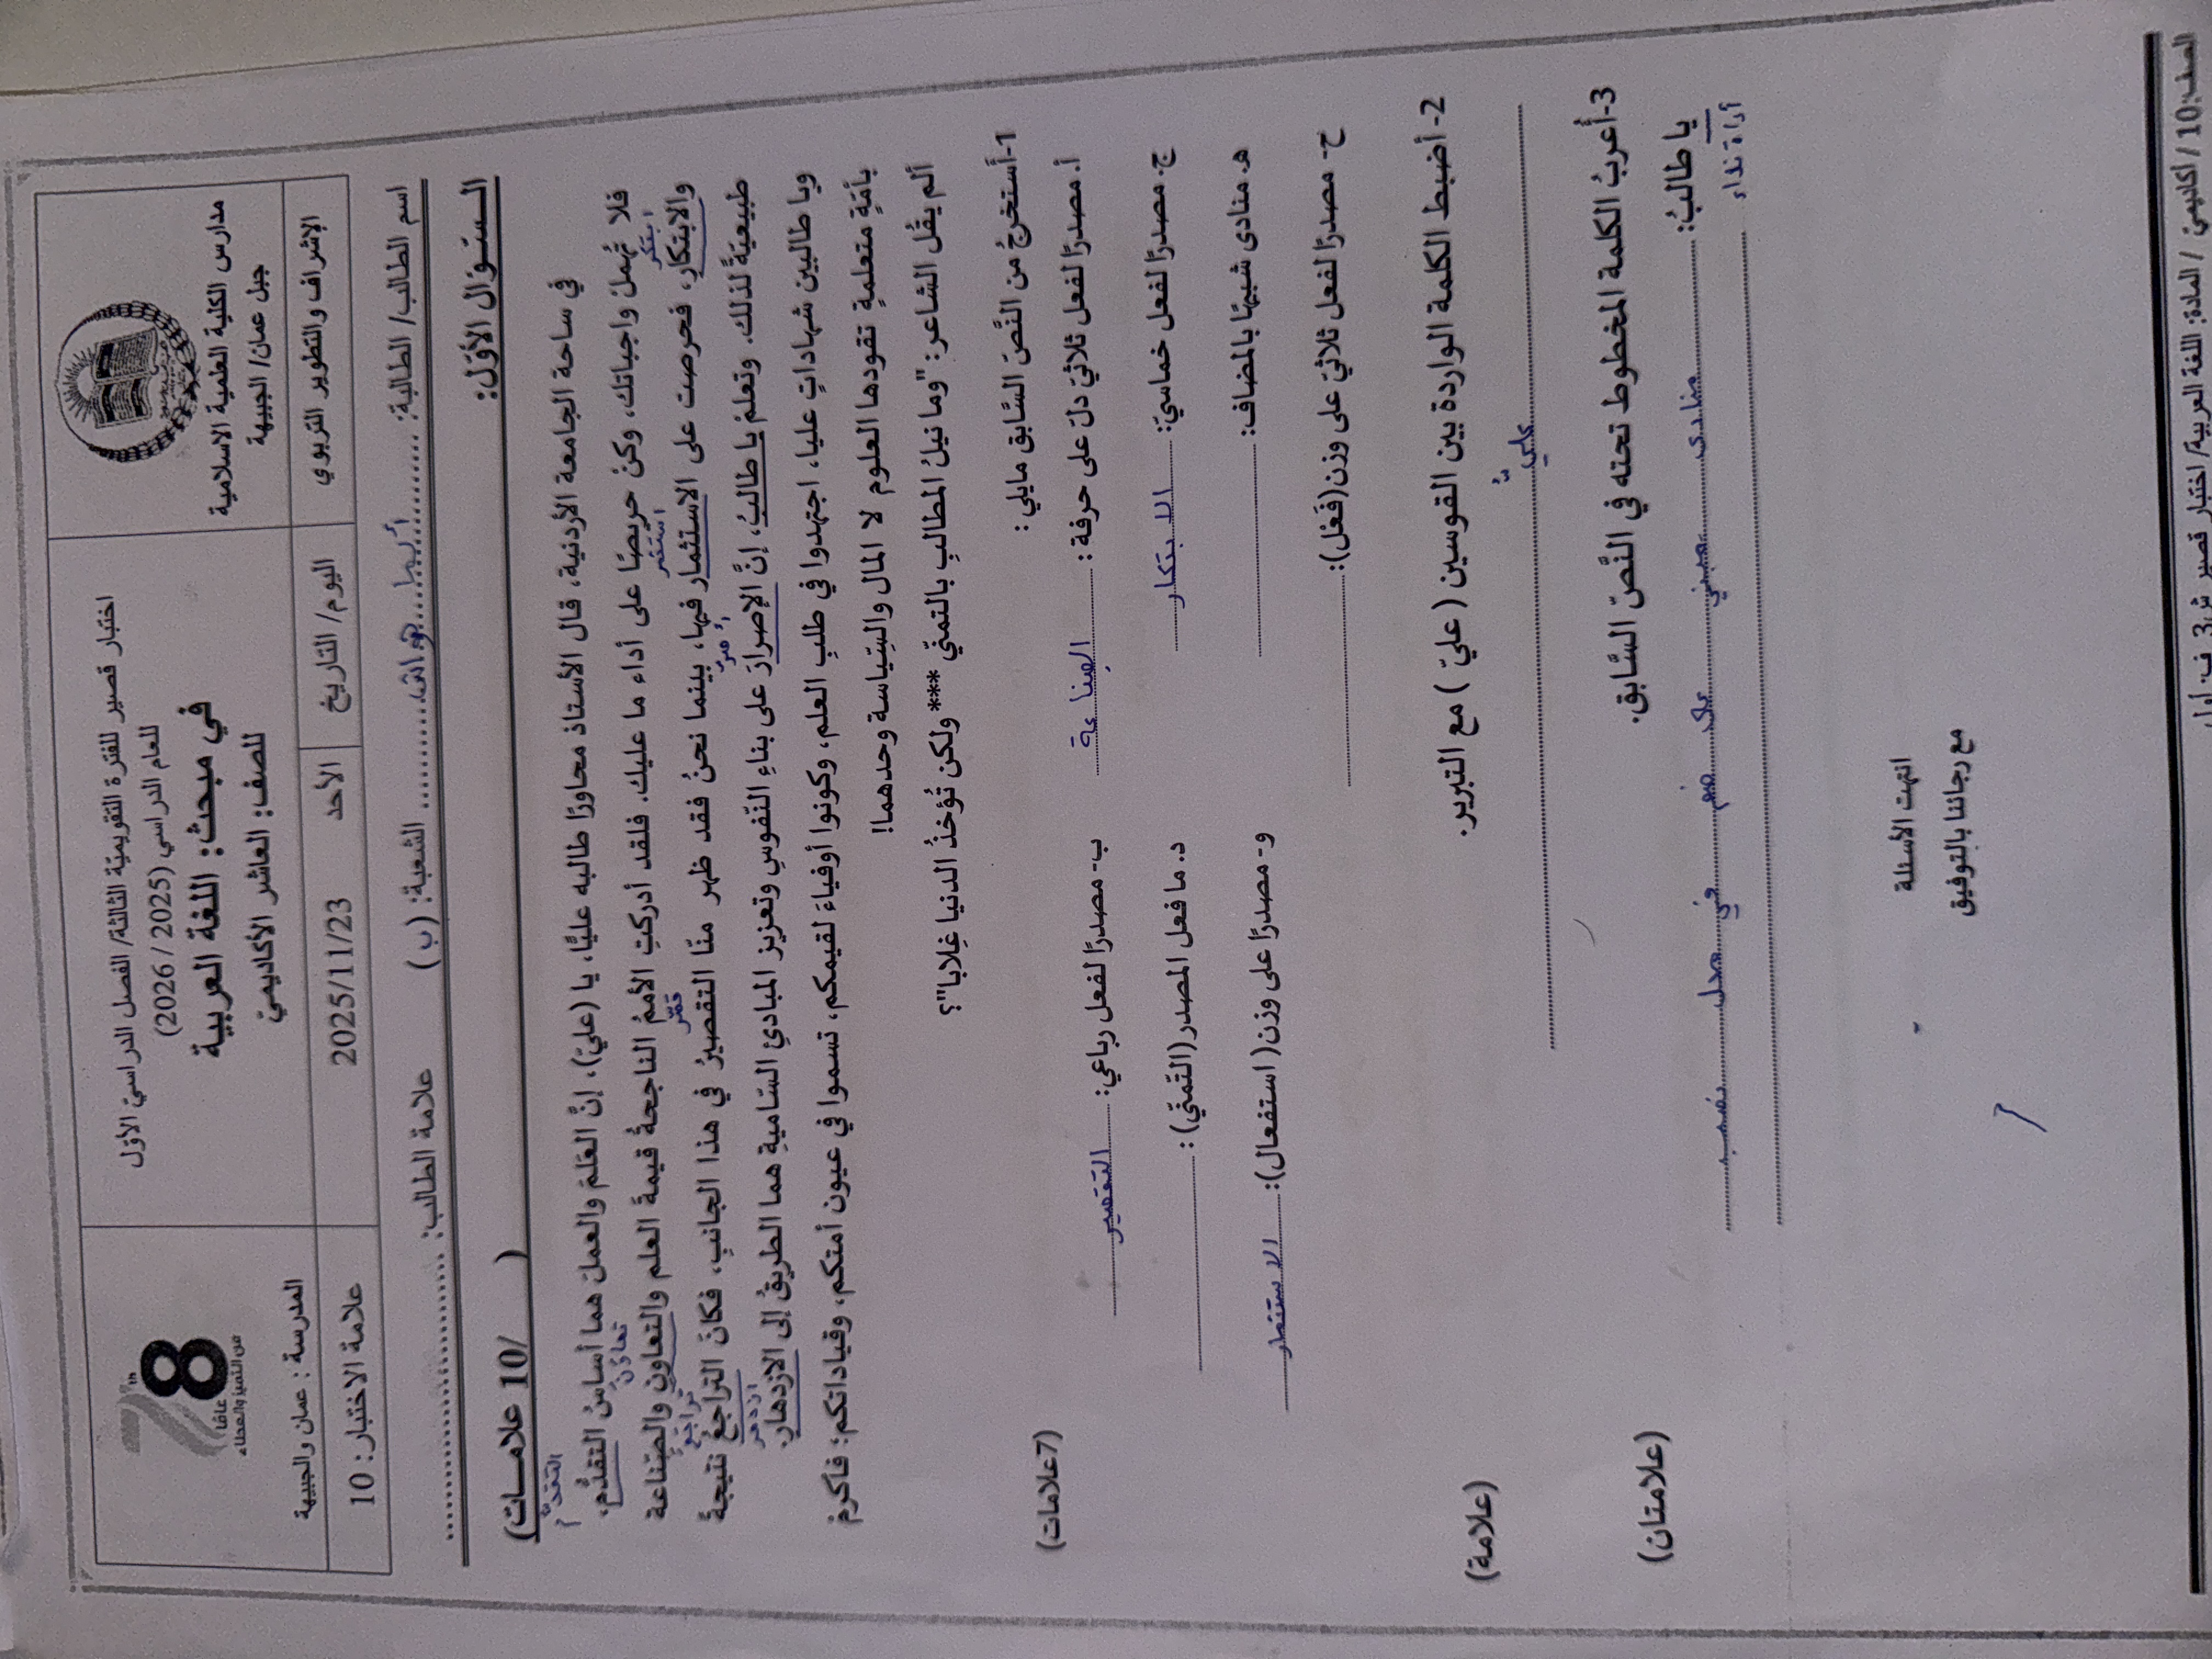 مدارس الكلية العلمية الاسلامية
جبل عمان/ الجبيهة
اختبار قصير للفترة التقويميّة الثالثة/ الفصل الدراسيّ الأوّل
للعام الدراسي (2025 / 2026)
في مبحث: اللغة العربية
للصف: العاشر الأكاديميّ
78
th
عامًا
من التميز والعطاء
المدرسة : عمان والجبيهة
الإشراف والتطوير التربوي
اليوم/ التاريخ
الأحد 2025/11/23
علامة الاختبار: 10
اسم الطالب/ الطالبة: ........ الشعبة: ( ب ) علامة الطالب: ........
السّؤال الأوّل: (10/ علامات)
في ساحة الجامعة الأردنية، قال الأستاذ محاورًا طالبه عليًّا، يا (عليّ)، إنَّ العَلمَ والعملَ هما أساسُ التقدُّمِ،
التقدّم
فلا تُهملْ واجباتك، وكنْ حريصًا على أداء ما عليك. فلقد أدركتِ الأممُ الناجحةُ قيمةَ العلم والتعاونِ والصّناعة
ابتكر استثمر قصّر تعاون تراجع
والابتكارِ، فحرصت على الاستثمار فيها، بينما نحنُ فقد ظهر منّا التقصيرُ في هذا الجانبِ، فكانَ التراجعُ نتيجةً
طبيعيّةً لذلك. وتعلمْ يا طالبُ، إنَّ الإصرارَ على بناءِ النّفوسِ وتعزيز المبادئِ السّاميةِ هما الطريقُ إلى الازدهارِ.
ازدهر
ويا طالبين شهاداتٍ عليا، اجتهدوا في طلبِ العلم، وكونوا أوفياءَ لقيمكم، تسموا في عيون أمتكم، وقياداتكم: فاكرمْ
بأمّةٍ متعلمةٍ تقودها العلوم لا المال والسّياسة وحدهما!
ألم يقُل الشاعر: "وما نيلُ المطالبِ بالتمنّي *** ولكن تُؤخذُ الدنيا غِلابا"؟
1-أستخرجُ من النّصّ السّابق مايلي : (7علامات)
أ. مصدرًا لفعل ثلاثيّ دلّ على حرفة : الصناعة ب- مصدرًا لفعل رباعي: التقصير
ج. مصدرًا لفعل خماسيّ: الابتكار د. ما فعل المصدر (التّمنّي) : ........
هـ. منادى شبيهًا بالمضاف: ........ و- مصدرًا على وزن( استفعال): الاستثمار
ح- مصدرًا لفعل ثلاثيّ على وزن(فَعْل): ........
2- أضبط الكلمة الواردة بين القوسين ( عليّ ) مع التبرير. (علامة)
عليُّ
3-أعربُ الكلمة المخطوط تحته في النّصّ السّابق. (علامتان)
يا طالبُ: منادى مبني على ضم في محل نصب
أداة نداء
انتهت الأسئلة
مع رجائنا بالتوفيق